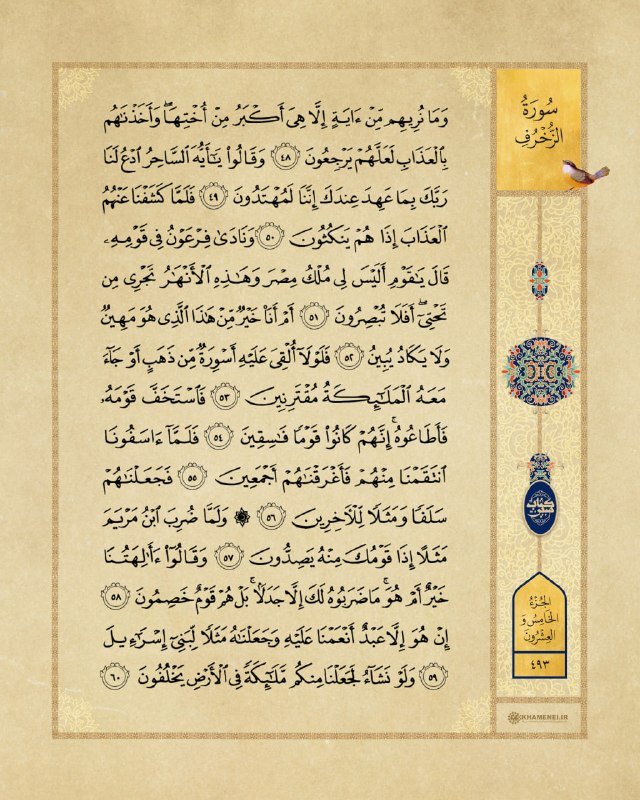 سُورَةُ
الزُّخْرُفِ
وَمَا نُرِيهِم مِّنْ ءَايَةٍ إِلَّا هِىَ أَكْبَرُ مِنْ أُخْتِهَا ۖ وَأَخَذْنَٰهُم
بِٱلْعَذَابِ لَعَلَّهُمْ يَرْجِعُونَ ٤٨ وَقَالُوا۟ يَٰٓأَيُّهَ ٱلسَّاحِرُ ٱدْعُ لَنَا
رَبَّكَ بِمَا عَهِدَ عِندَكَ إِنَّنَا لَمُهْتَدُونَ ٤٩ فَلَمَّا كَشَفْنَا عَنْهُمُ
ٱلْعَذَابَ إِذَا هُمْ يَنكُثُونَ ٥٠ وَنَادَىٰ فِرْعَوْنُ فِى قَوْمِهِۦ
قَالَ يَٰقَوْمِ أَلَيْسَ لِى مُلْكُ مِصْرَ وَهَٰذِهِ ٱلْأَنْهَٰرُ تَجْرِى مِن
تَحْتِىٓ ۖ أَفَلَا تُبْصِرُونَ ٥١ أَمْ أَنَا۠ خَيْرٌ مِّنْ هَٰذَا ٱلَّذِى هُوَ مَهِينٌ
وَلَا يَكَادُ يُبِينُ ٥٢ فَلَوْلَآ أُلْقِىَ عَلَيْهِ أَسْوِرَةٌ مِّن ذَهَبٍ أَوْ جَآءَ
مَعَهُ ٱلْمَلَٰٓئِكَةُ مُقْتَرِنِينَ ٥٣ فَٱسْتَخَفَّ قَوْمَهُۥ
فَأَطَاعُوهُ ۚ إِنَّهُمْ كَانُوا۟ قَوْمًا فَٰسِقِينَ ٥٤ فَلَمَّآ ءَاسَفُونَا
ٱنتَقَمْنَا مِنْهُمْ فَأَغْرَقْنَٰهُمْ أَجْمَعِينَ ٥٥ فَجَعَلْنَٰهُمْ
سَلَفًا وَمَثَلًا لِّلْءَاخِرِينَ ٥٦ ۞ وَلَمَّا ضُرِبَ ٱبْنُ مَرْيَمَ
مَثَلًا إِذَا قَوْمُكَ مِنْهُ يَصِدُّونَ ٥٧ وَقَالُوٓا۟ ءَأَٰلِهَتُنَا
خَيْرٌ أَمْ هُوَ ۚ مَا ضَرَبُوهُ لَكَ إِلَّا جَدَلًۢا ۚ بَلْ هُمْ قَوْمٌ خَصِمُونَ ٥٨
إِنْ هُوَ إِلَّا عَبْدٌ أَنْعَمْنَا عَلَيْهِ وَجَعَلْنَٰهُ مَثَلًا لِّبَنِىٓ إِسْرَٰٓءِيلَ
٥٩ وَلَوْ نَشَآءُ لَجَعَلْنَا مِنكُم مَّلَٰٓئِكَةً فِى ٱلْأَرْضِ يَخْلُفُونَ ٦٠
الجُزْءُ
الخَامِسُ وَ
العِشْرُونَ
٤٩٣
KHAMENEI.IR